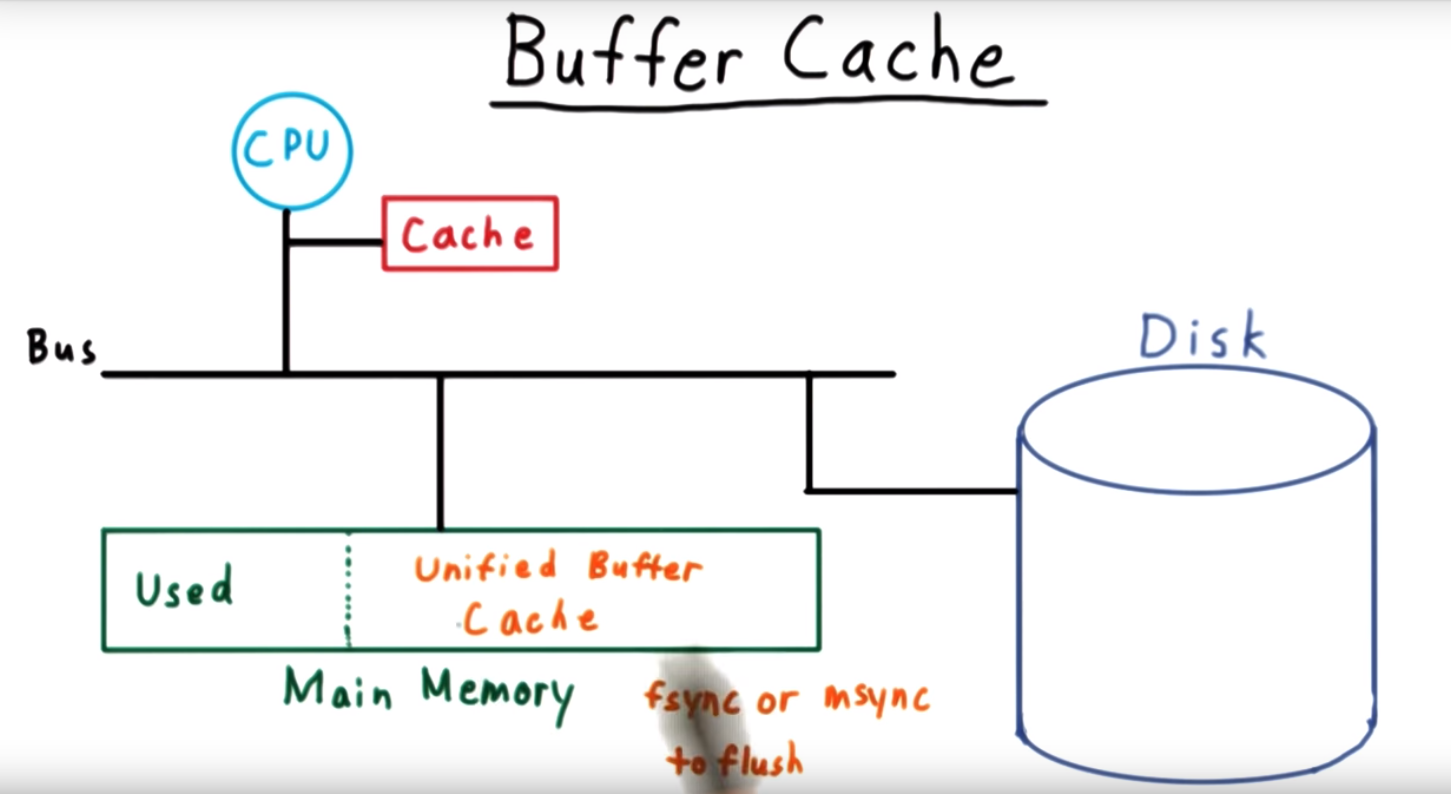 Buffer Cache
CPU
Cache
Bus
Disk
Used
Unified Buffer
Cache
Main Memory
fsync or msync
to flush